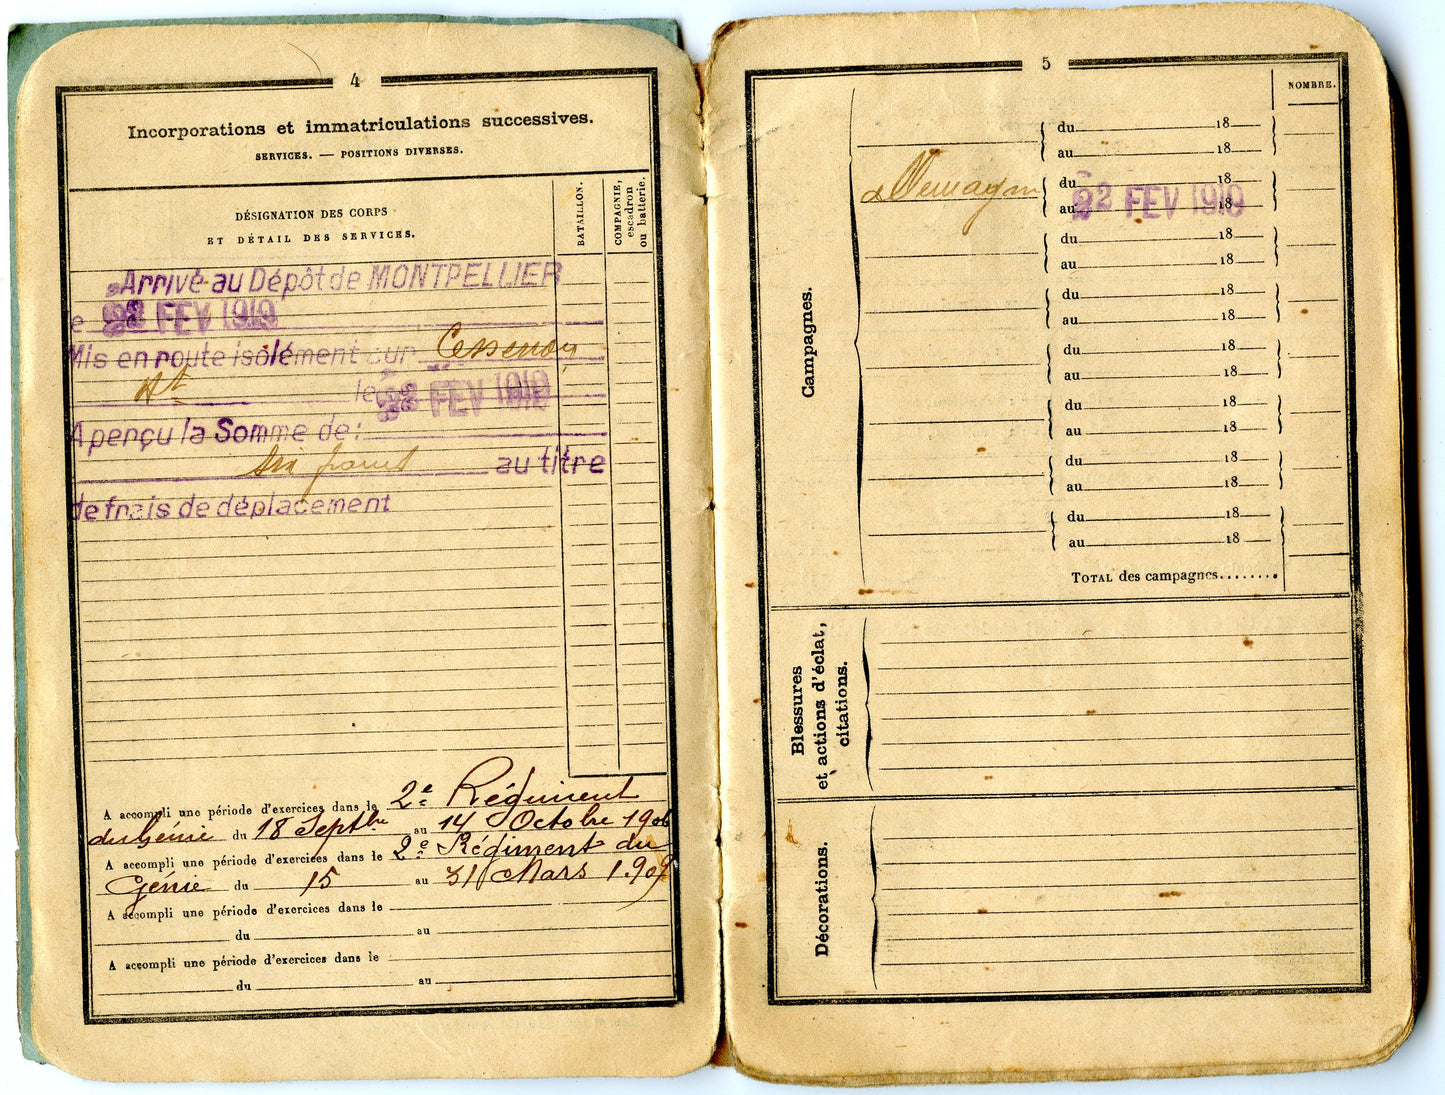 4
Incorporations et immatriculations successives.
SERVICES. — POSITIONS DIVERSES.
DÉSIGNATION DES CORPS
ET DÉTAIL DES SERVICES.
BATAILLON.
COMPAGNIE,
escadron
ou batterie.
Arrivé au Dépôt de MONTPELLIER
le 22 FEV 1919
Mis en route isolément sur Cessenon
Ht le 22 FEV 1919
A perçu la Somme de :
six francs au titre
de frais de déplacement
A accompli une période d'exercices dans le 2e Régiment
du Génie du 18 Septbre au 14 Octobre 1906
A accompli une période d'exercices dans le 2e Régiment du
Génie du 15 au 31 Mars 1909
A accompli une période d'exercices dans le
du au
A accompli une période d'exercices dans le
du au
5
NOMBRE.
Campagnes.
du 18
au 18
Allemagne du 18
au 22 FEV 1919 18
du 18
au 18
du 18
au 18
du 18
au 18
du 18
au 18
du 18
au 18
du 18
au 18
TOTAL des campagnes........
Blessures
et actions d'éclat,
citations.
Décorations.